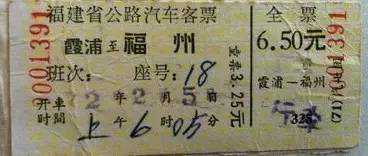 0001391
福建省公路汽车客票
霞浦至福州
班次: 座号:18
开车时间 2年2月5日
上午6时05分
童票3.25元
全票
6.50元
霞浦—福州
325
0001391